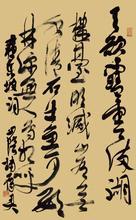 天欲雪雲滿湖
樓臺明滅山有無
水清石出魚可數
林深無人鳥相呼
蘇東坡詞